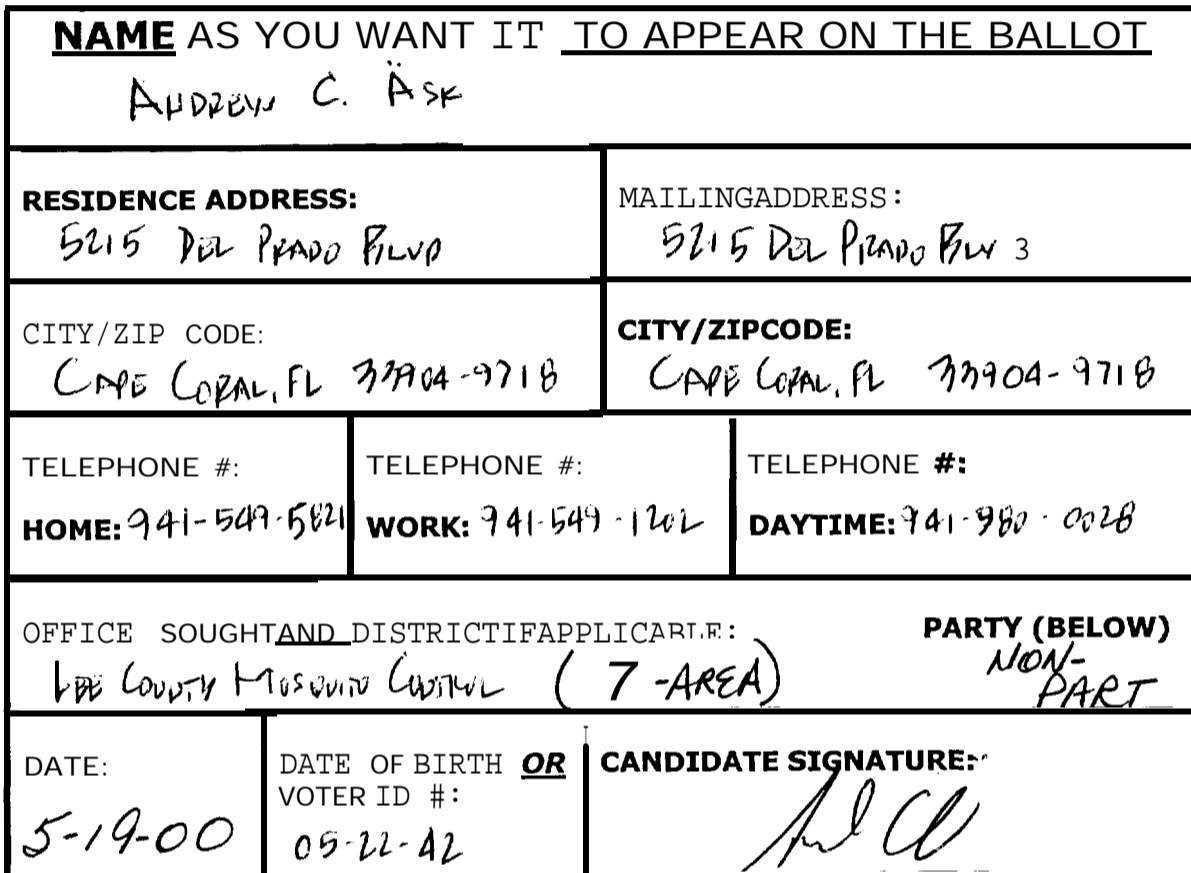 NAME AS YOU WANT IT TO APPEAR ON THE BALLOT
ANDREW C. ÄSK
RESIDENCE ADDRESS:
5215 DEL PRADO BLVD
MAILINGADDRESS:
5215 DEL PRADO BLV 3
CITY/ZIP CODE:
CAPE CORAL, FL 33904-9718
CITY/ZIPCODE:
CAPE CORAL, FL 33904-9718
TELEPHONE #:
HOME: 941-549-5821
TELEPHONE #:
WORK: 941-549-1202
TELEPHONE #:
DAYTIME: 941-980-0028
OFFICE SOUGHTAND DISTRICTIFAPPLICABLE:
LEE COUNTY MOSQUITO CONTROL (7-AREA)
PARTY (BELOW)
NON-
PART
DATE:
5-19-00
DATE OF BIRTH OR
VOTER ID #:
05-22-42
CANDIDATE SIGNATURE: